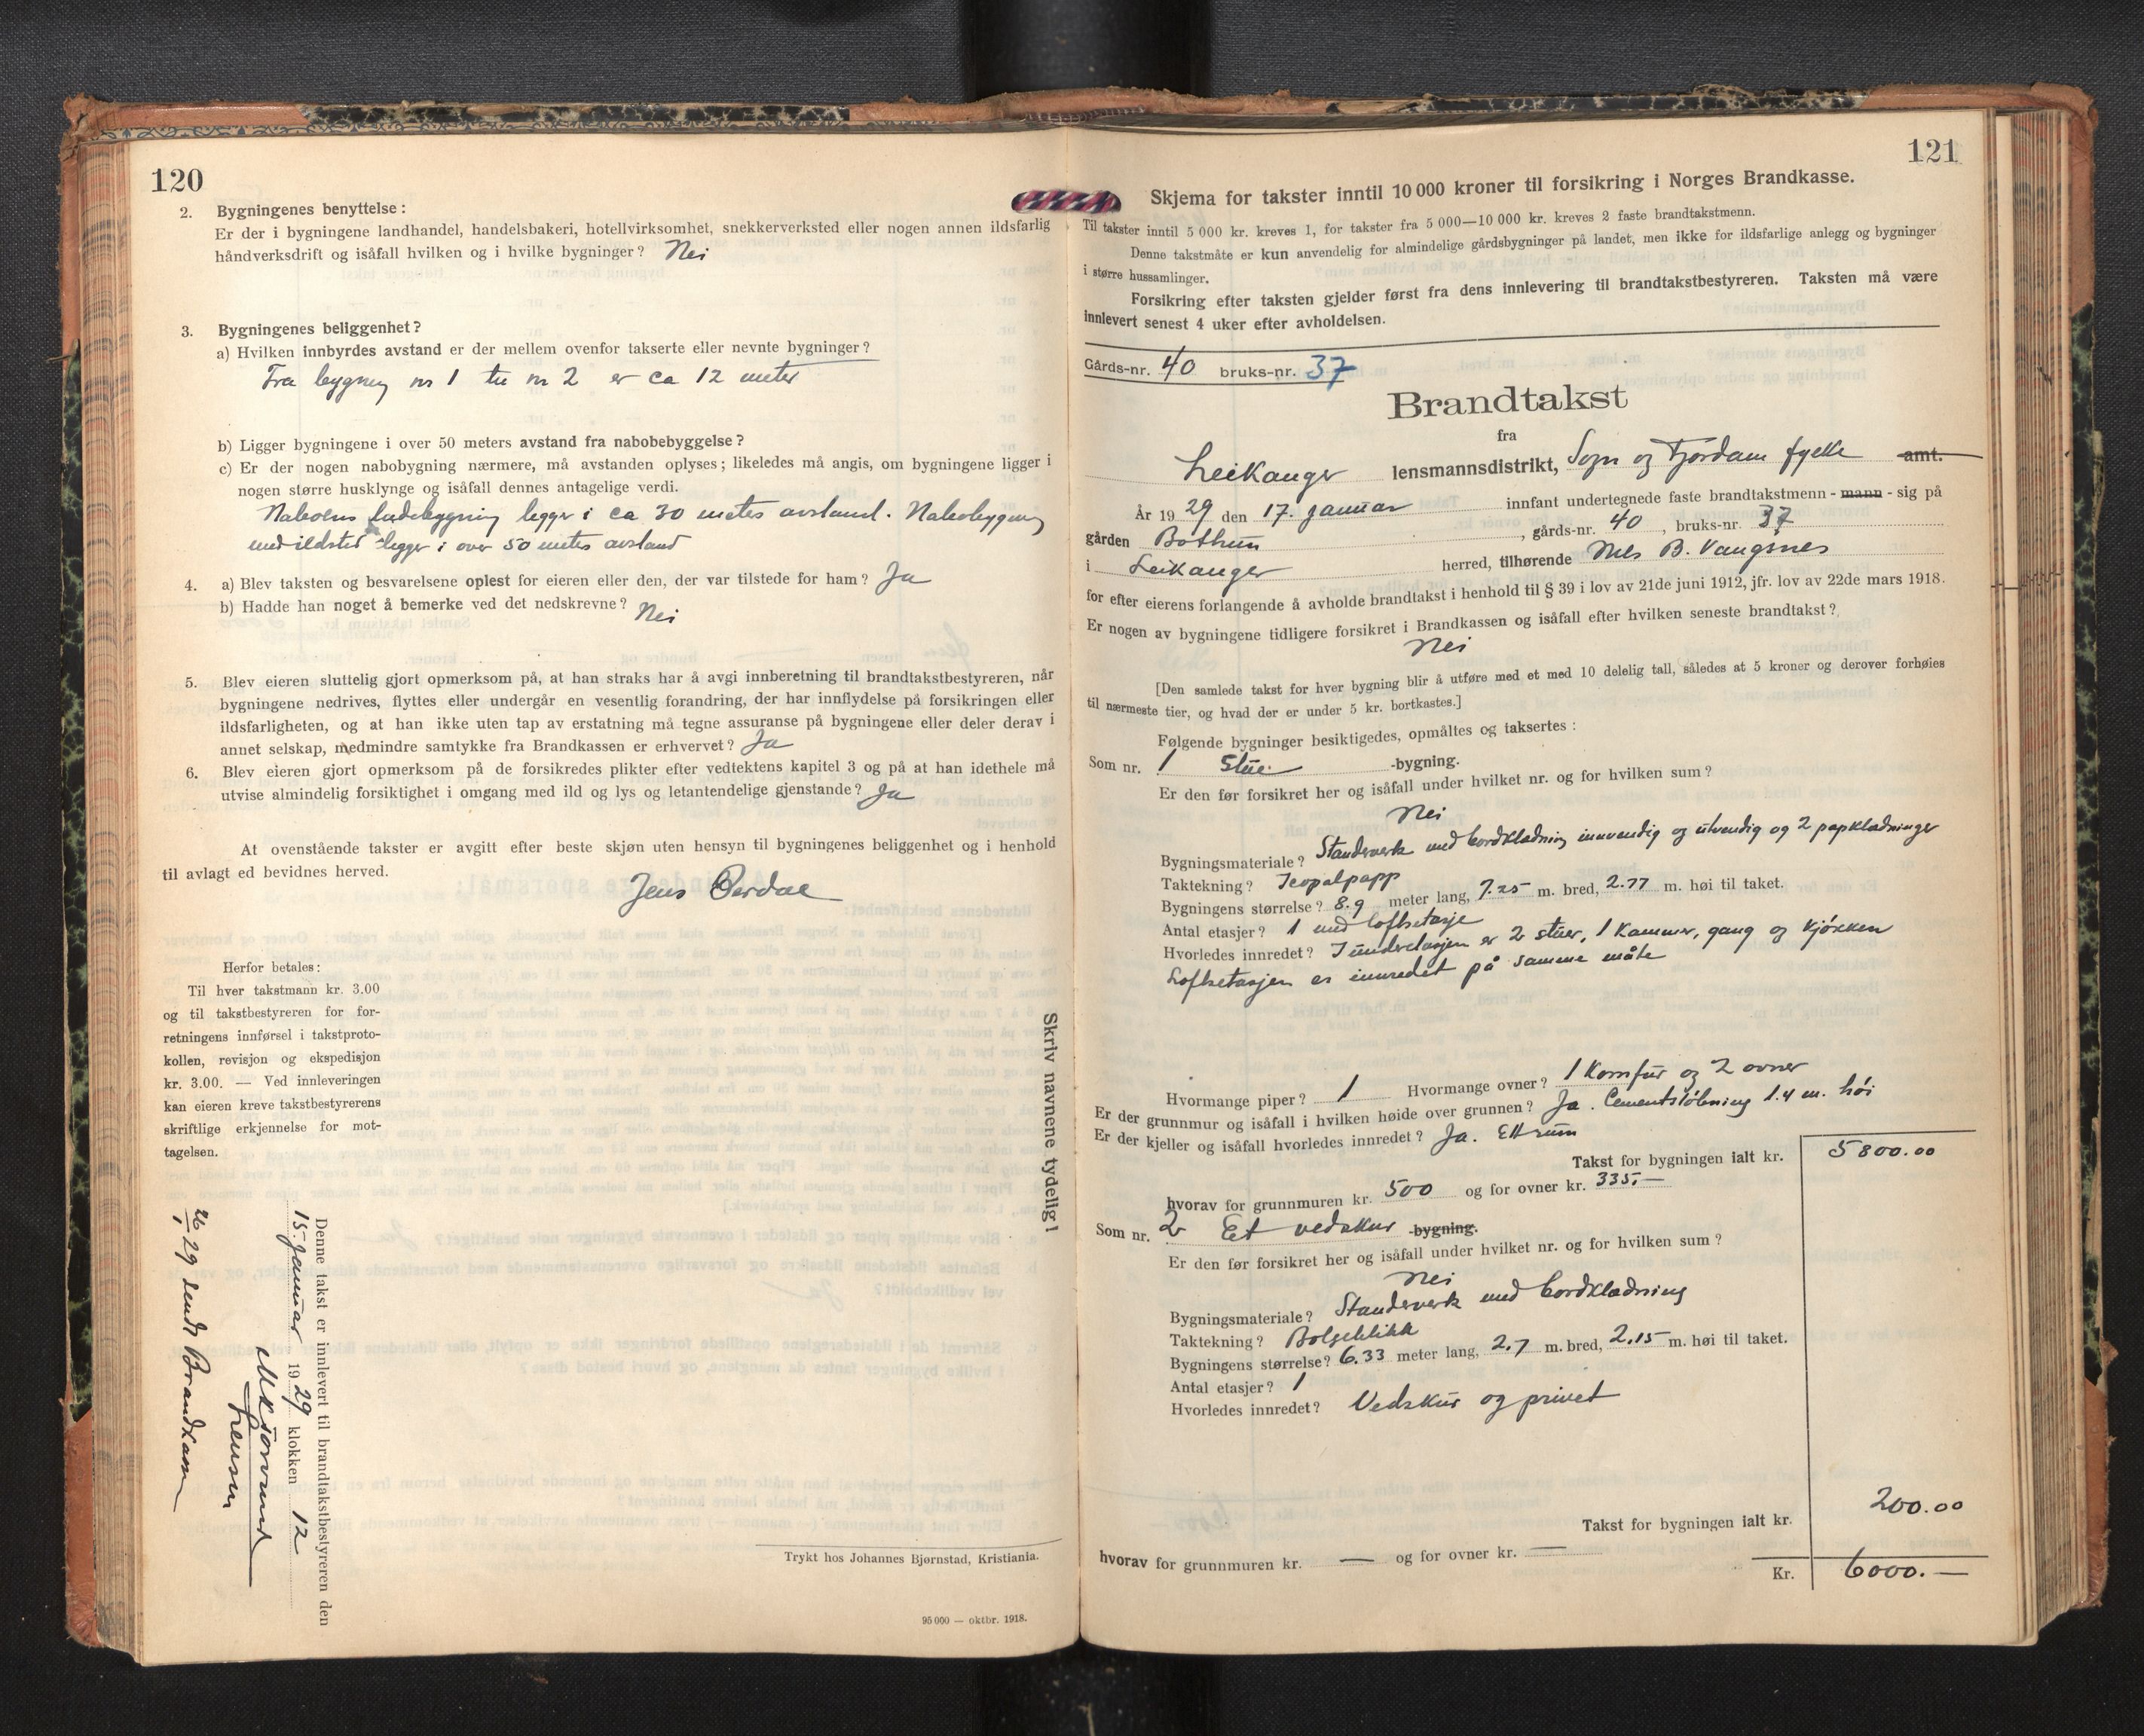 120
2. Bygningenes benyttelse:
Er der i bygningene landhandel, handelsbakeri, hotellvirksomhet, snekkerverksted eller nogen annen ildsfarlig
håndverksdrift og isåfall hvilken og i hvilke bygninger? Nei
3. Bygningenes beliggenhet?
a) Hvilken innbyrdes avstand er der mellem ovenfor takserte eller nevnte bygninger?
Fra bygning nr 1 til nr 2 er ca 12 meter
b) Ligger bygningene i over 50 meters avstand fra nabobebyggelse?
c) Er der nogen nabobygning nærmere, må avstanden oplyses; likeledes må angis, om bygningene ligger i
nogen større husklynge og isåfall dennes antagelige verdi.
Naboens ligger i ca 30 meters avstand. Nabobygning
med ildsted ligger i over 50 meters avstand
4. a) Blev taksten og besvarelsene oplest for eieren eller den, der var tilstede for ham? Ja
b) Hadde han noget å bemerke ved det nedskrevne? Nei
5. Blev eieren sluttelig gjort opmerksom på, at han straks har å avgi innberetning til brandtakstbestyreren, når
bygningene nedrives, flyttes eller undergår en vesentlig forandring, der har innflydelse på forsikringen eller
ildsfarligheten, og at han ikke uten tap av erstatning må tegne assuranse på bygningene eller deler derav i
annet selskap, medmindre samtykke fra Brandkassen er erhvervet? Ja
6. Blev eieren gjort opmerksom på de forsikredes plikter efter vedtektens kapitel 3 og på at han idethele må
utvise almindelig forsiktighet i omgang med ild og lys og letantendelige gjenstande? Ja
At ovenstående takster er avgitt efter beste skjøn uten hensyn til bygningenes beliggenhet og i henhold
til avlagt ed bevidnes herved.
Jens Øerdal
Herfor betales:
Til hver takstmann kr. 3.00
og til takstbestyreren for for-
retningens innførsel i takstproto-
kollen, revisjon og ekspedisjon
kr. 3.00. — Ved innleveringen
kan eieren kreve takstbestyrerens
skriftlige erkjennelse for mot-
tagelsen.
Skriv navnene tydelig!
Denne takst er innlevert til brandtakstbestyreren den
15. januar 1929 klokken 12
lensm
26/1 29 sendt Brandkassen
Trykt hos Johannes Bjørnstad, Kristiania.
95 000 — oktbr. 1918.
121
Skjema for takster inntil 10 000 kroner til forsikring i Norges Brandkasse.
Til takster inntil 5 000 kr. kreves 1, for takster fra 5 000—10 000 kr. kreves 2 faste brandtakstmenn.
Denne takstmåte er kun anvendelig for almindelige gårdsbygninger på landet, men ikke for ildsfarlige anlegg og bygninger
i større hussamlinger.
Forsikring efter taksten gjelder først fra dens innlevering til brandtakstbestyreren. Taksten må være
innlevert senest 4 uker efter avholdelsen.
Gårds-nr. 40 bruks-nr. 37
Brandtakst
fra
Leikanger lensmannsdistrikt, Sogn og Fjordane fylke amt.
År 1929 den 17. januar innfant undertegnede faste brandtakstmenn - mann - sig på
gården Bothun, gårds-nr. 40, bruks-nr. 37
i Leikanger herred, tilhørende Nils B. Vangsnes
for efter eierens forlangende å avholde brandtakst i henhold til § 39 i lov av 21de juni 1912, jfr. lov av 22de mars 1918.
Er nogen av bygningene tidligere forsikret i Brandkassen og isåfall efter hvilken seneste brandtakst?
Nei
[Den samlede takst for hver bygning blir å utføre med et med 10 delelig tall, således at 5 kroner og derover forhøies
til nærmeste tier, og hvad der er under 5 kr. bortkastes.]
Følgende bygninger besiktigedes, opmåltes og taksertes:
Som nr. 1 Stue -bygning.
Er den før forsikret her og isåfall under hvilket nr. og for hvilken sum?
Nei
Bygningsmateriale? Standerverk med bordklædning innvendig og utvendig og 2 papklædninger
Taktekning? Icopalpapp
Bygningens størrelse? 8.9 meter lang, 7.25 m. bred, 2.77 m. høi til taket.
Antal etasjer? 1 med loftsetasje
Hvorledes innredet? I underetasjen er 2 stuer, 1 kammer, gang og kjøkken
Loftsetasjen er innredet på samme måte
Hvormange piper? 1 Hvormange ovner? 1 Komfur og 2 ovner
Er der grunnmur og isåfall i hvilken høide over grunnen? Ja. Cementstøbning 1.4 m. høi
Er der kjeller og isåfall hvorledes innredet? Ja. Ett rum
Takst for bygningen ialt kr. 5800.00
hvorav for grunnmuren kr. 500 og for ovner kr. 335,—
Som nr. 2 Et vedskur -bygning.
Er den før forsikret her og isåfall under hvilket nr. og for hvilken sum?
Nei
Bygningsmateriale? Standerverk med bordklædning
Taktekning? Bølgeblikk
Bygningens størrelse? 6.33 meter lang, 2.7 m. bred, 2.15 m. høi til taket.
Antal etasjer? 1
Hvorledes innredet? Vedskur og privet
Takst for bygningen ialt kr. 200.00
hvorav for grunnmuren kr. — og for ovner kr. —
Kr. 6000.—